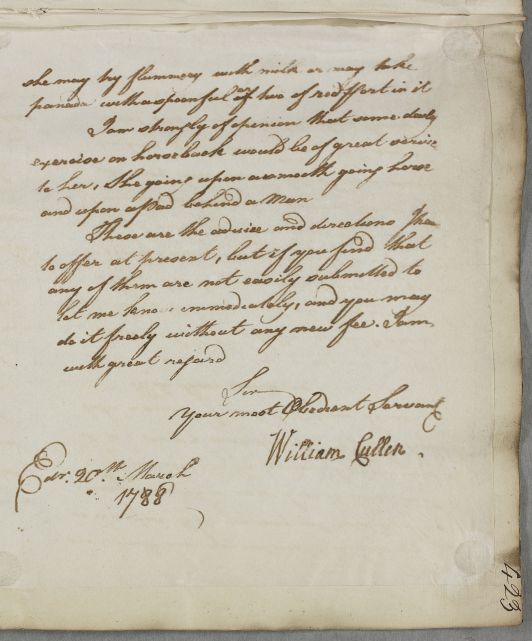 she may try flummery with milk or may take
panada with a spoonful or two of red Port in it
I am strongly of opinion that some daily
exercise on horseback would be of great service
to her, She going upon a smooth going horse
and upon a Pad behind a Man
These are the advice and directions I have
to offer at present, but if you find that
any of them are not easily submitted to
let me know immediately, and you may
do it freely without any new fee. I am
with great regard
Sir
Your most Obedient Servant
William Cullen.
Edr. 20th. March
1788
423